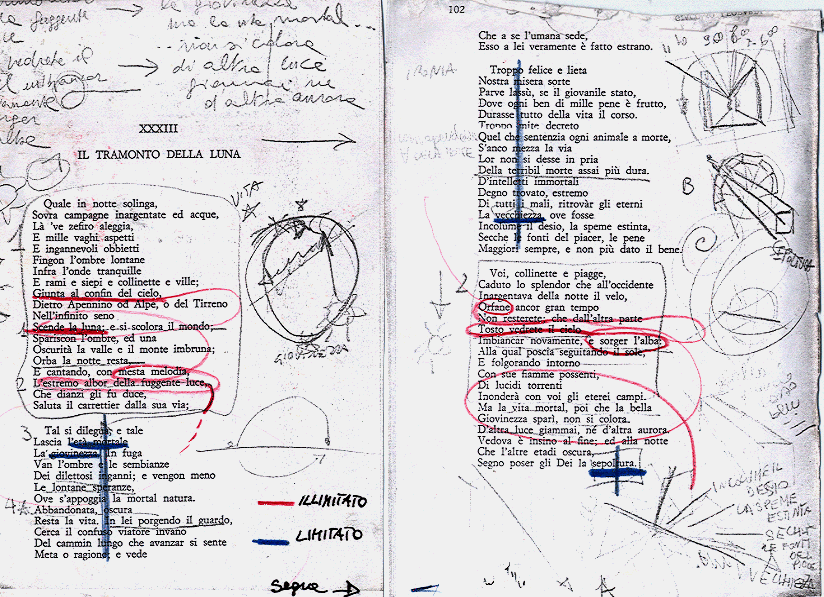 fuggente
vedrete il
la giovinezza
ma la vita mortal...
...non si colora
di altra luce
giammai né
d'altra aurora
XXXIII
IL TRAMONTO DELLA LUNA
Quale in notte solinga,
Sovra campagne inargentate ed acque,
Là 've zefiro aleggia,
E mille vaghi aspetti
E ingannevoli obbietti
Fingon l'ombre lontane
Infra l'onde tranquille
E rami e siepi e collinette e ville;
Giunta al confin del cielo,
Dietro Apennino od Alpe, o del Tirreno
Nell'infinito seno
Scende la luna; e si scolora il mondo;
Spariscon l'ombre, ed una
Oscurità la valle e il monte imbruna;
Orba la notte resta,
E cantando, con mesta melodia,
L'estremo albor della fuggente luce,
Che dianzi gli fu duce,
Saluta il carrettier dalla sua via;
Tal si dilegua, e tale
Lascia l'età mortale
La giovinezza. In fuga
Van l'ombre e le sembianze
Dei dilettosi inganni; e vengon meno
Le lontane speranze,
Ove s'appoggia la mortal natura.
Abbandonata, oscura
Resta la vita. In lei porgendo il guardo,
Cerca il confuso viatore invano
Del cammin lungo che avanzar si sente
Meta o ragione; e vede
VITA
GIOVINEZZA
2
3
4
ILLIMITATO
LIMITATO
Segue
102
Che a se l'umana sede,
Esso a lei veramente è fatto estrano.
Troppo felice e lieta
Nostra misera sorte
Parve lassù, se il giovanile stato,
Dove ogni ben di mille pene è frutto,
Durasse tutto della vita il corso.
Troppo mite decreto
Quel che sentenzia ogni animale a morte,
S'anco mezza la via
Lor non si desse in pria
Della terribil morte assai più dura.
D'intelletti immortali
Degno trovato, estremo
Di tutti i mali, ritrovàr gli eterni
La vecchiezza, ove fosse
Incolume il desio, la speme estinta,
Secche le fonti del piacer, le pene
Maggiori sempre, e non più dato il bene.
Voi, collinette e piagge,
Caduto lo splendor che all'occidente
Inargentava della notte il velo,
Orfane ancor gran tempo
Non resterete; che dall'altra parte
Tosto vedrete il cielo
Imbiancar novamente, e sorger l'alba:
Alla qual poscia seguitando il sole,
E folgorando intorno
Con sue fiamme possenti,
Di lucidi torrenti
Inonderà con voi gli eterei campi.
Ma la vita mortal, poi che la bella
Giovinezza sparì, non si colora
D'altra luce giammai, né d'altra aurora.
Vedova è insino al fine; ed alla notte
Che l'altre etadi oscura,
Segno poser gli Dei la sepoltura.
IRONIA
B
SEPOLTURA
2
INCOLUME IL
DESIO
LA SPEME
ESTINTA
SECCHE
LE FONTI
DEL
PIACE
VECCHIEZZA